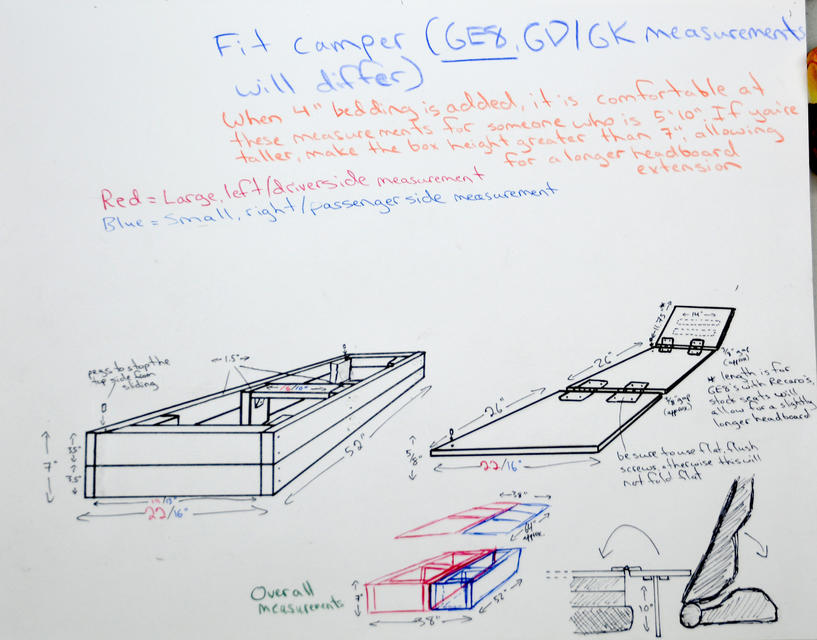 Fit camper (GE8, GD/GK measurements
will differ)
When 4" bedding is added, it is comfortable at
these measurements for someone who is 5'10". If you're
taller, make the box height greater than 7", allowing
for a longer headboard
extension
Red = Large, left/driverside measurement
Blue = Small, right/passenger side measurement
pegs to stop the
top side from
sliding
1.5"
7"
3.5"
3.5"
22/16"
52"
26"
26"
11.75"
14"
5/8"
22/16"
3/8" gap
(approx)
3/8" gap
(approx)
* length is for
GE8's with Recaro's,
stock seats will
allow for a slightly
longer headboard
be sure to use flat, flush
screws, otherwise this will
not fold flat
Overall
measurements
38"
64"
approx
7"
52"
38"
10"